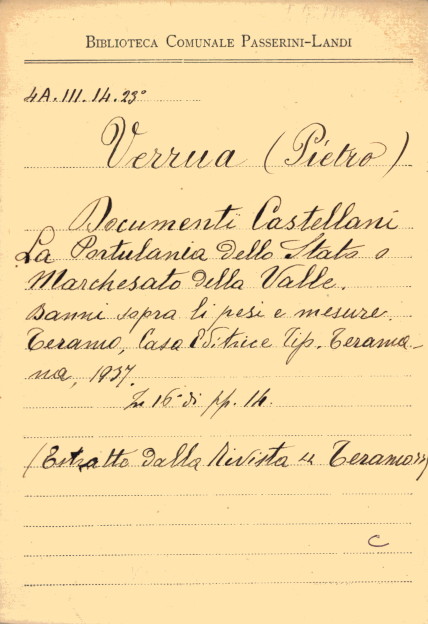 BIBLIOTECA COMUNALE PASSERINI-LANDI
4A.III.14.23°
Verrua (Pietro)
Documenti Castellani
La Portulania dello Stato o
Marchesato della Valle.
Banni sopra li pesi e mesure.
Teramo, Casa Editrice Tip. Terama-
na, 1937.
In 16° di pp. 14.
(Estratto dalla Rivista "Teramo")
C